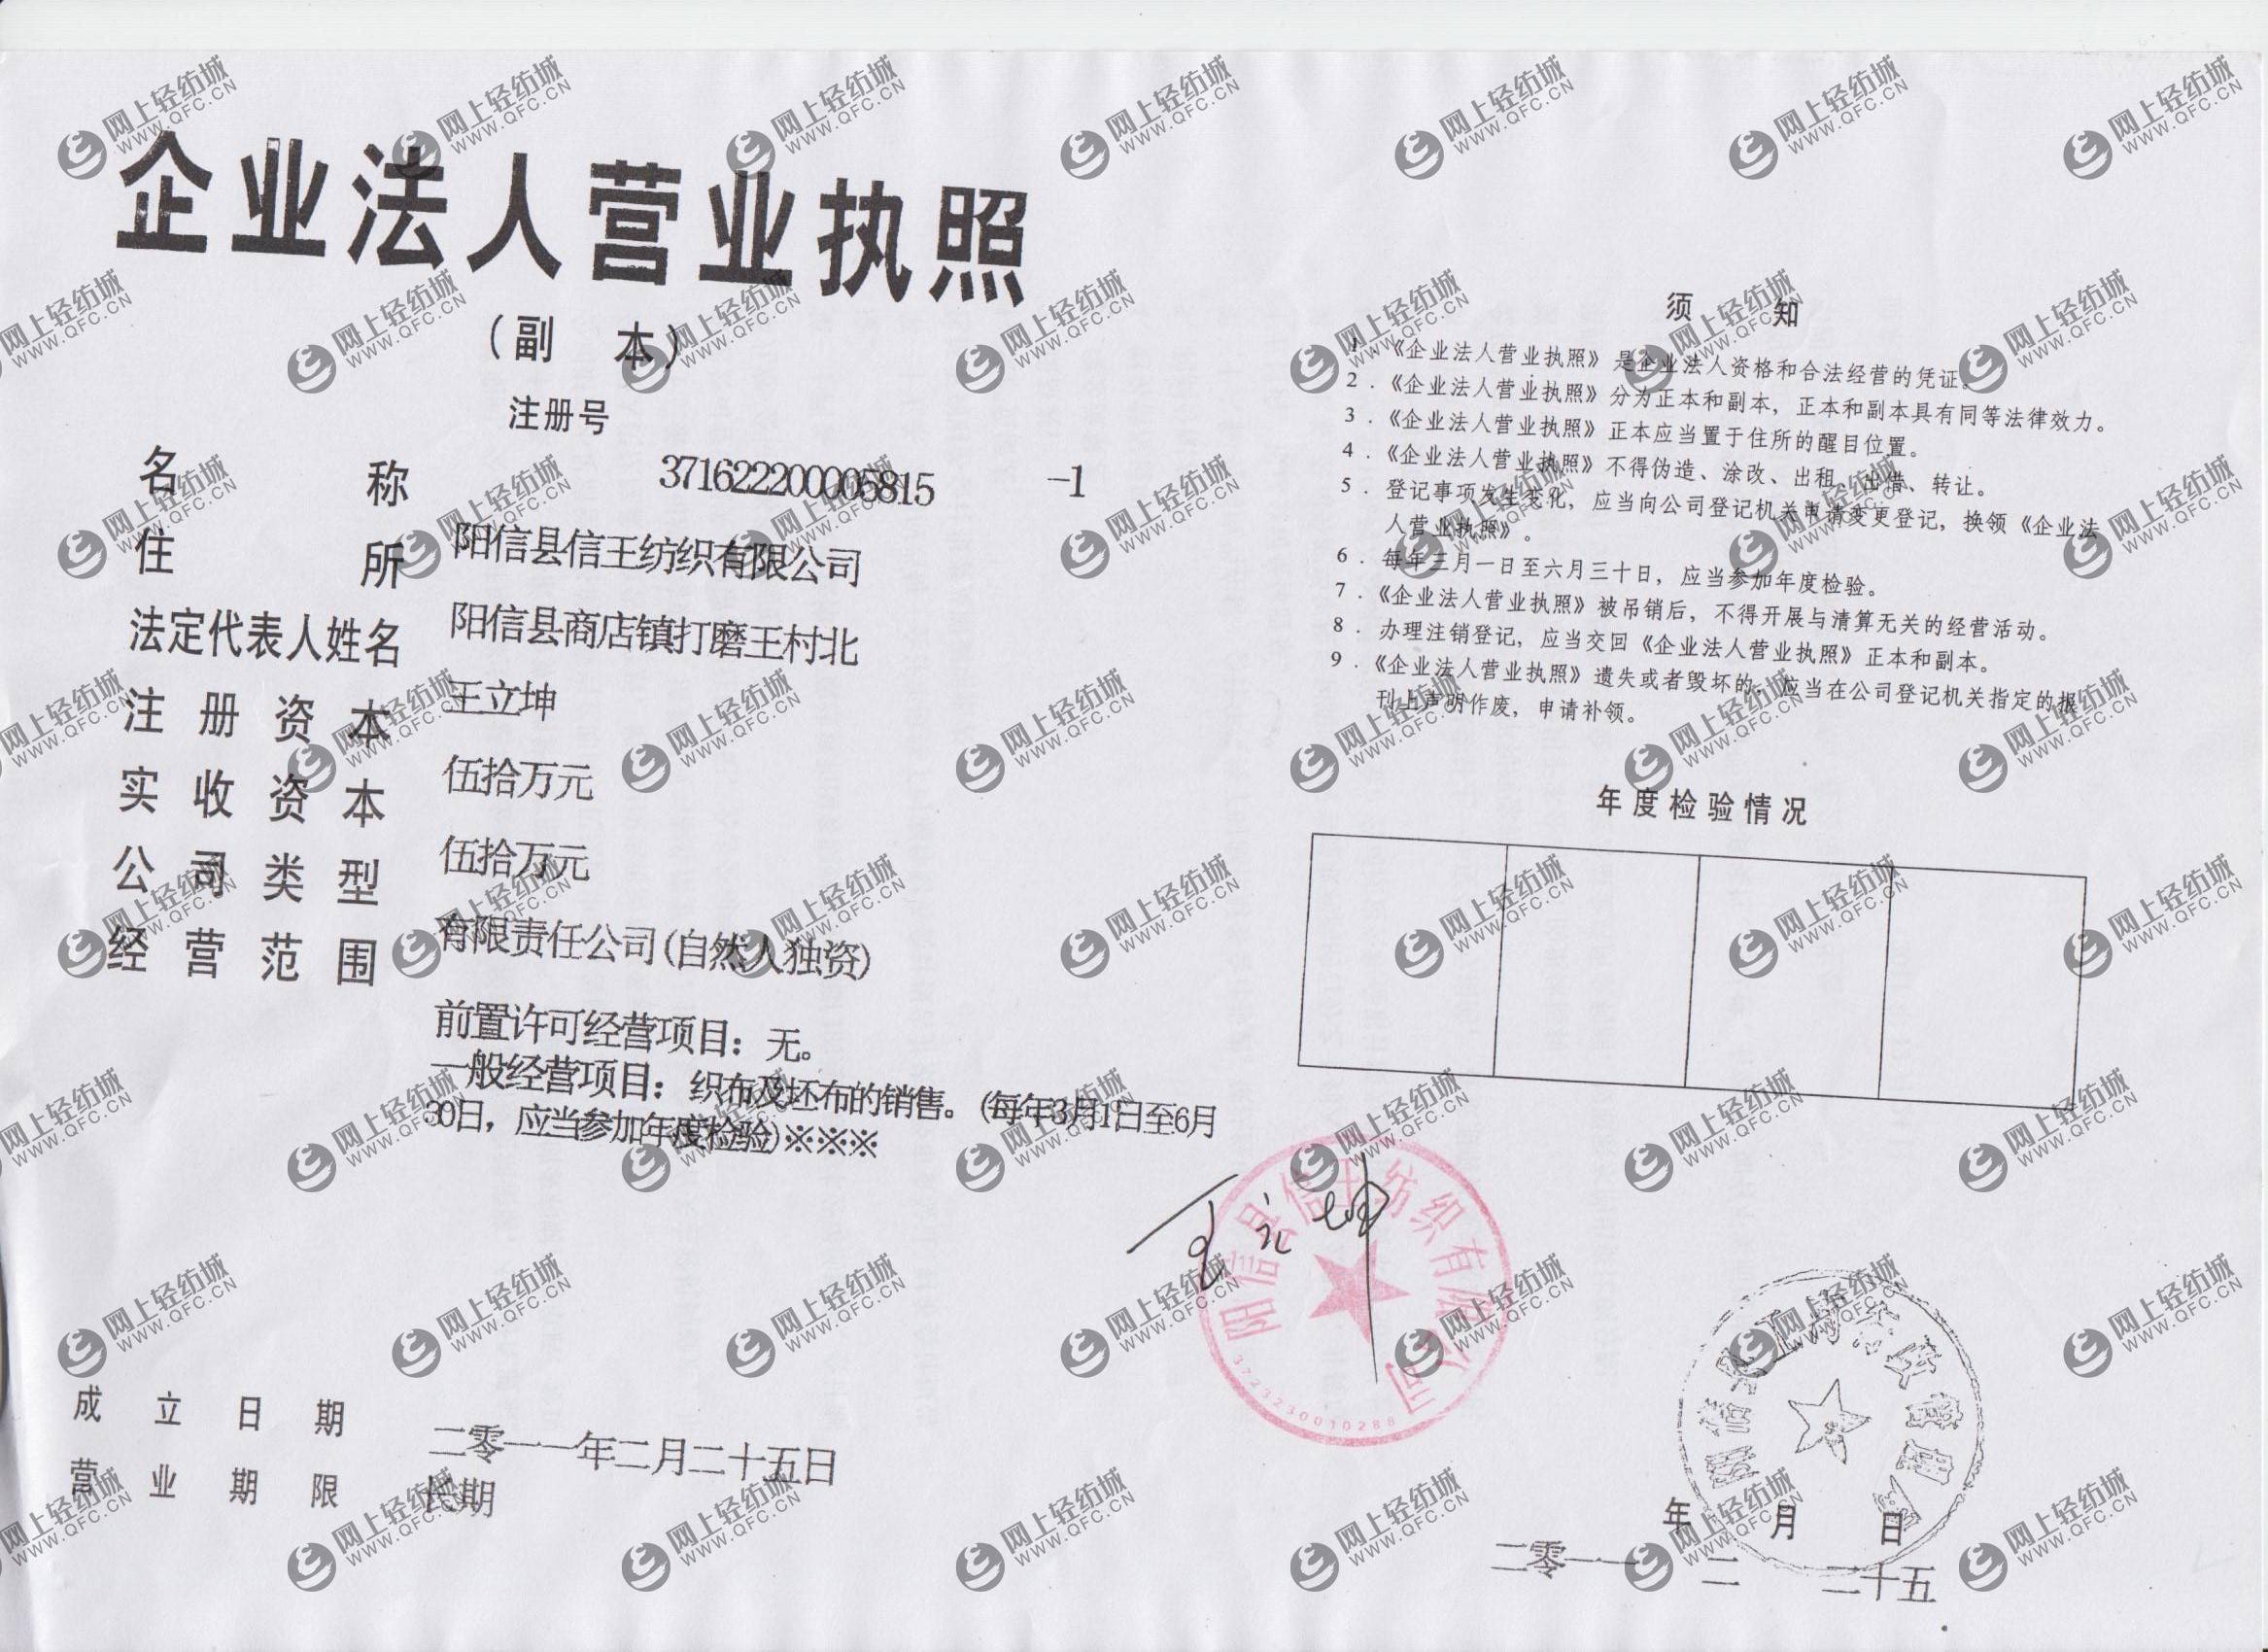 企业法人营业执照
（副 本）
注册号
371622200005815 -1
名 称
阳信县信王纺织有限公司
住 所
阳信县商店镇打磨王村北
法定代表人姓名
王立坤
注 册 资 本
伍拾万元
实 收 资 本
伍拾万元
公 司 类 型
有限责任公司(自然人独资)
经 营 范 围
前置许可经营项目：无。
一般经营项目：织布及坯布的销售。(每年3月1日至6月
30日，应当参加年度检验)※※※
成 立 日 期
二零一一年二月二十五日
营 业 期 限
长期
须 知
1．《企业法人营业执照》是企业法人资格和合法经营的凭证。
2．《企业法人营业执照》分为正本和副本，正本和副本具有同等法律效力。
3．《企业法人营业执照》正本应当置于住所的醒目位置。
4．《企业法人营业执照》不得伪造、涂改、出租、出借、转让。
5．登记事项发生变化，应当向公司登记机关申请变更登记，换领《企业法
人营业执照》。
6．每年三月一日至六月三十日，应当参加年度检验。
7．《企业法人营业执照》被吊销后，不得开展与清算无关的经营活动。
8．办理注销登记，应当交回《企业法人营业执照》正本和副本。
9．《企业法人营业执照》遗失或者毁坏的，应当在公司登记机关指定的报
刊上声明作废，申请补领。
年度检验情况
王立坤
阳信县信王纺织有限公司
3723230010288
阳信县工商行政管理局
年 月 日
二零一一 二 二十五
网上轻纺城
WWW.QFC.CN